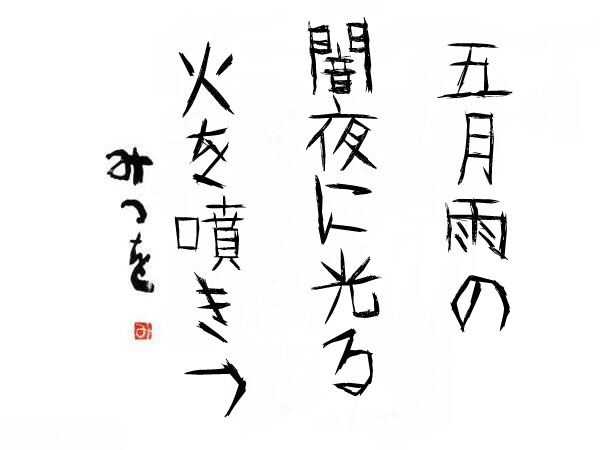 五月雨の
闇夜に光る
火を噴き→
みつを
み